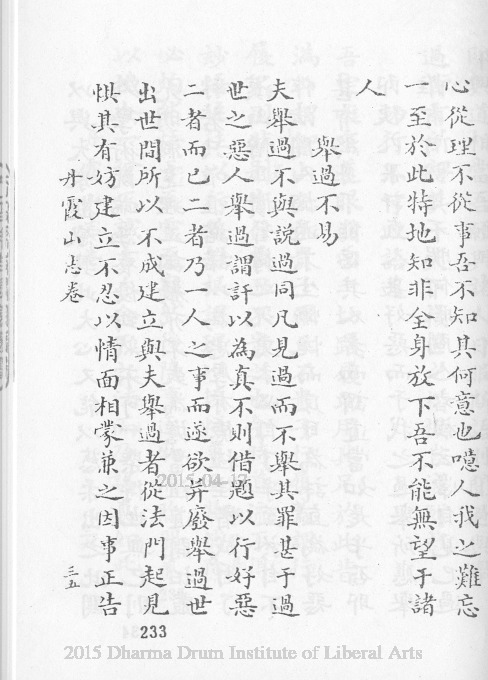 心從理不從事吾不知其何意也噫人我之難忘
一至於此特地知非全身放下吾不能無望于諸
人
舉過不易
夫舉過不與說過同凡見過而不舉其罪甚于過
世之惡人舉過謂訐以為真不則借題以行好惡
二者而已二者乃一人之事而遂欲并廢舉過世
出世間所以不成建立與夫舉過者從法門起見
惧其有妨建立不忍以情面相蒙兼之因事正告
丹霞山志卷 三五
233
2015-04-17
2015 Dharma Drum Institute of Liberal Arts